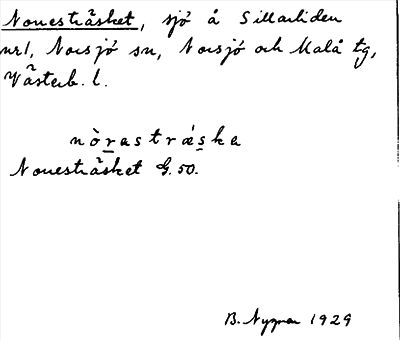 Noresträsket, sjö å Sillarliden
url, Norsjö sn, Norsjö och Malå tg,
Västerb. l.
nòrastrǽska
Noresträsket G. 50.
B. Nyman 1929